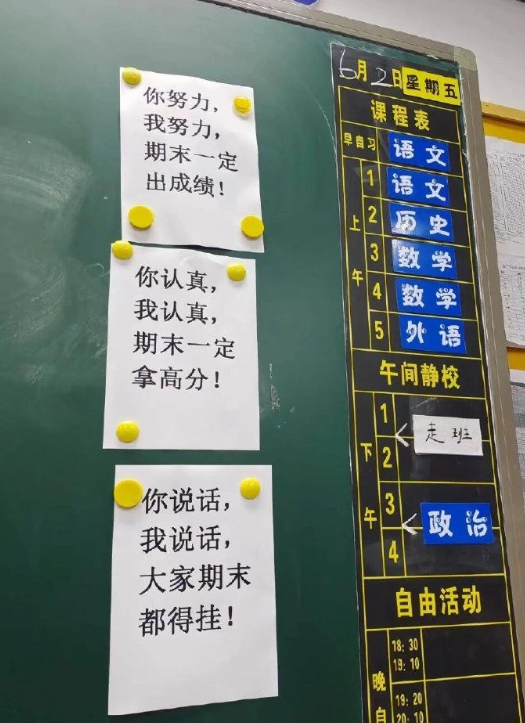 你努力，
我努力，
期末一定
出成绩！
你认真，
我认真，
期末一定
拿高分！
你说话，
我说话，
大家期末
都得挂！
6月2日 星期五
课程表
早自习 语文
上午
1 语文
2 历史
3 数学
4 数学
5 外语
午间静校
下午
1
2
走班
3
4
政治
自由活动
晚自
18:30
19:10
19:20
20:10